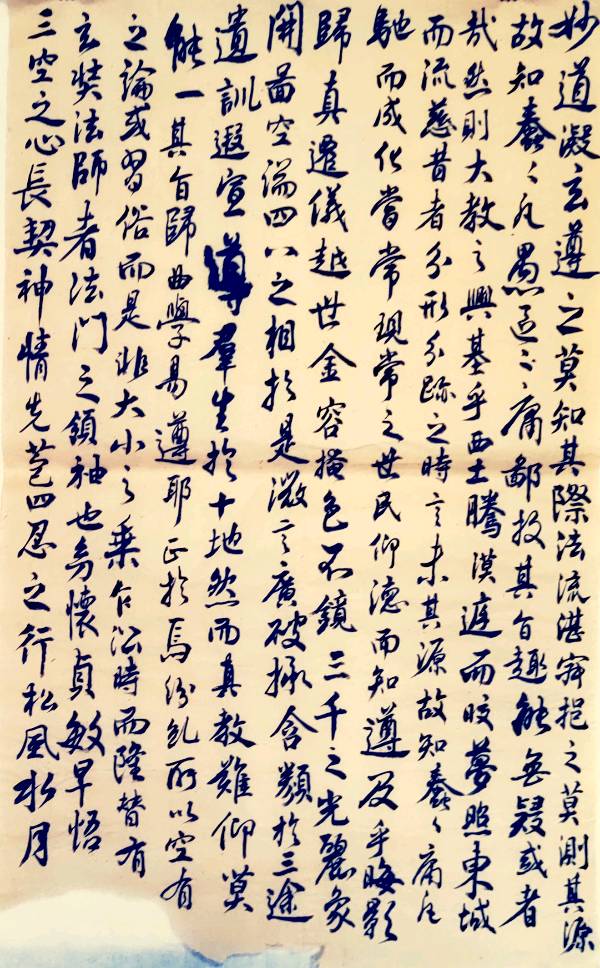 妙道凝玄遵之莫知其際法流湛寂挹之莫測其源
故知蠢々凡愚區々庸鄙投其旨趣能無疑或者
哉然則大教之興基乎西土騰漢庭而皎夢照東域
而流慈昔者分形分跡之時言未其源故知蠢々庸凡
馳而成化當常現常之世民仰德而知遵及乎晦影
歸真遷儀越世金容掩色不鏡三千之光麗象
開圖空端四八之相於是微言廣破拯含類於三途
遺訓遐宣導群生於十地然而真教難仰莫
能一其旨歸曲學易遵耶正於焉紛糺所以空有
之論或習俗而是非大小之乘乍沿時而隆替有
玄奘法師者法門之領袖也幼懷貞敏早悟
三空之心長契神情先苞四忍之行松風水月